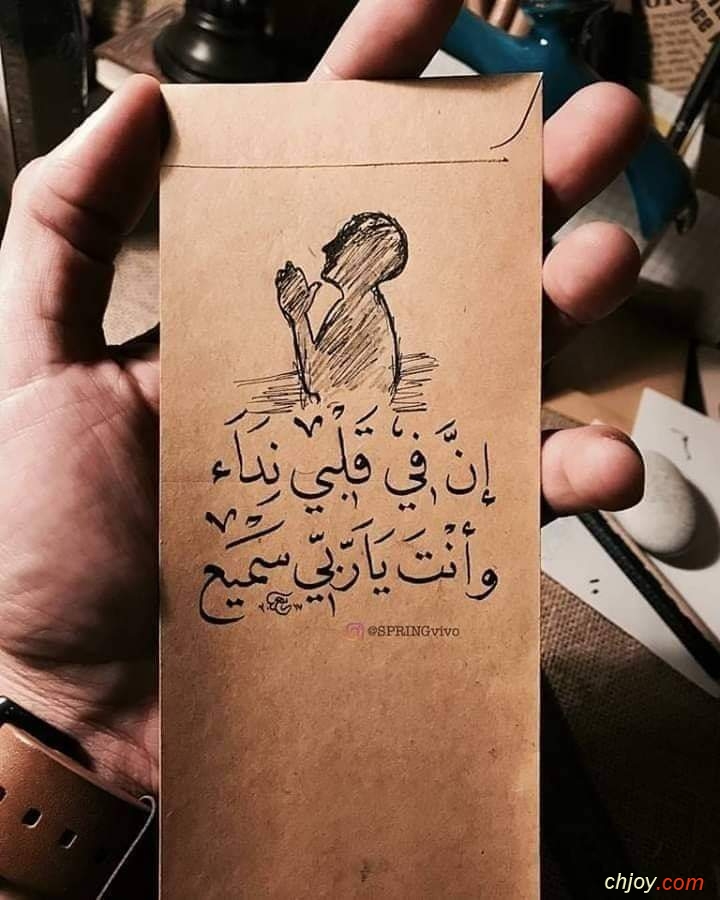 إِنَّ فِي قَلْبِي نِدَاء
وأنْتَ يَارَبِّي سَمِيع
@SPRINGvivo
chjoy.com